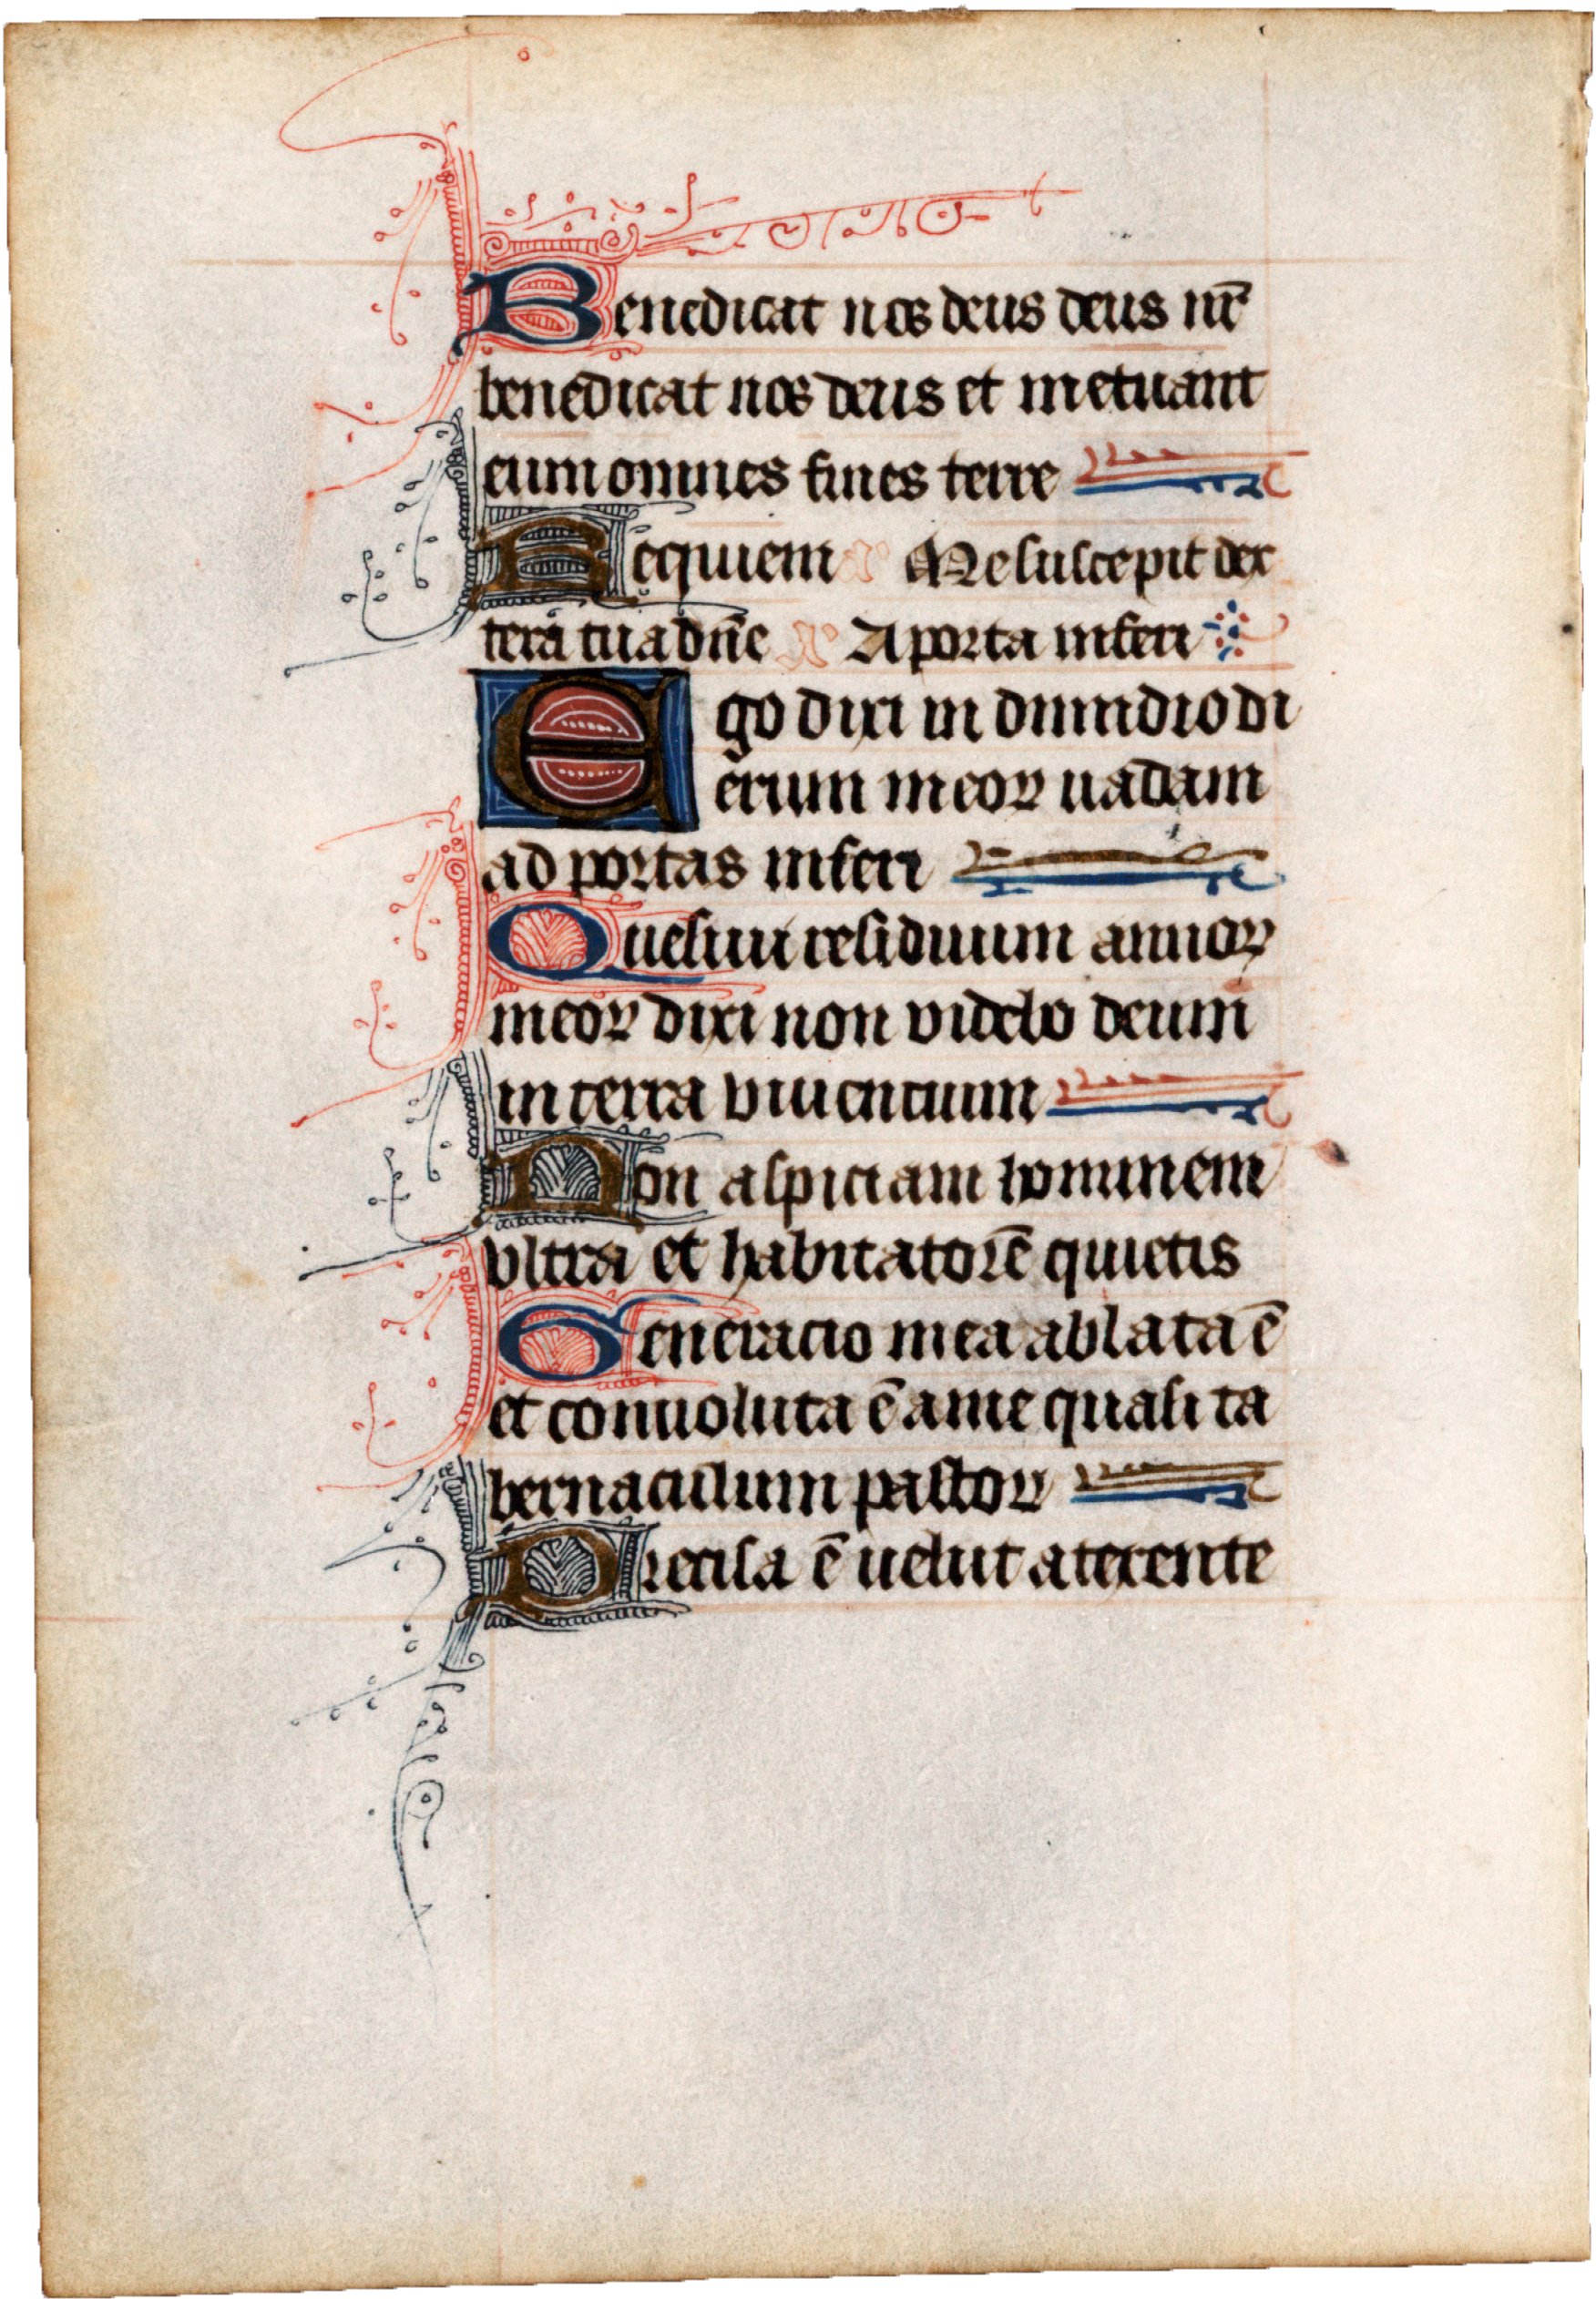 Benedicat nos deus deus nr̄
benedicat nos deus et metuant
eum omnes fines terre
Requiem Me suscepit dex
tera tua dn̄e A porta inferi
Ego dixi in dimidio di
erum meoꝝ uadam
ad portas inferi
Quesiui residuum annoꝝ
meoꝝ dixi non videbo deum
in terra viuentium
Non aspiciam hominem
vltra et habitatorē quietis
Generacio mea ablata ē
et conuoluta ē a me quasi ta
bernaculum pastoꝝ
Precisa ē uelut a texente